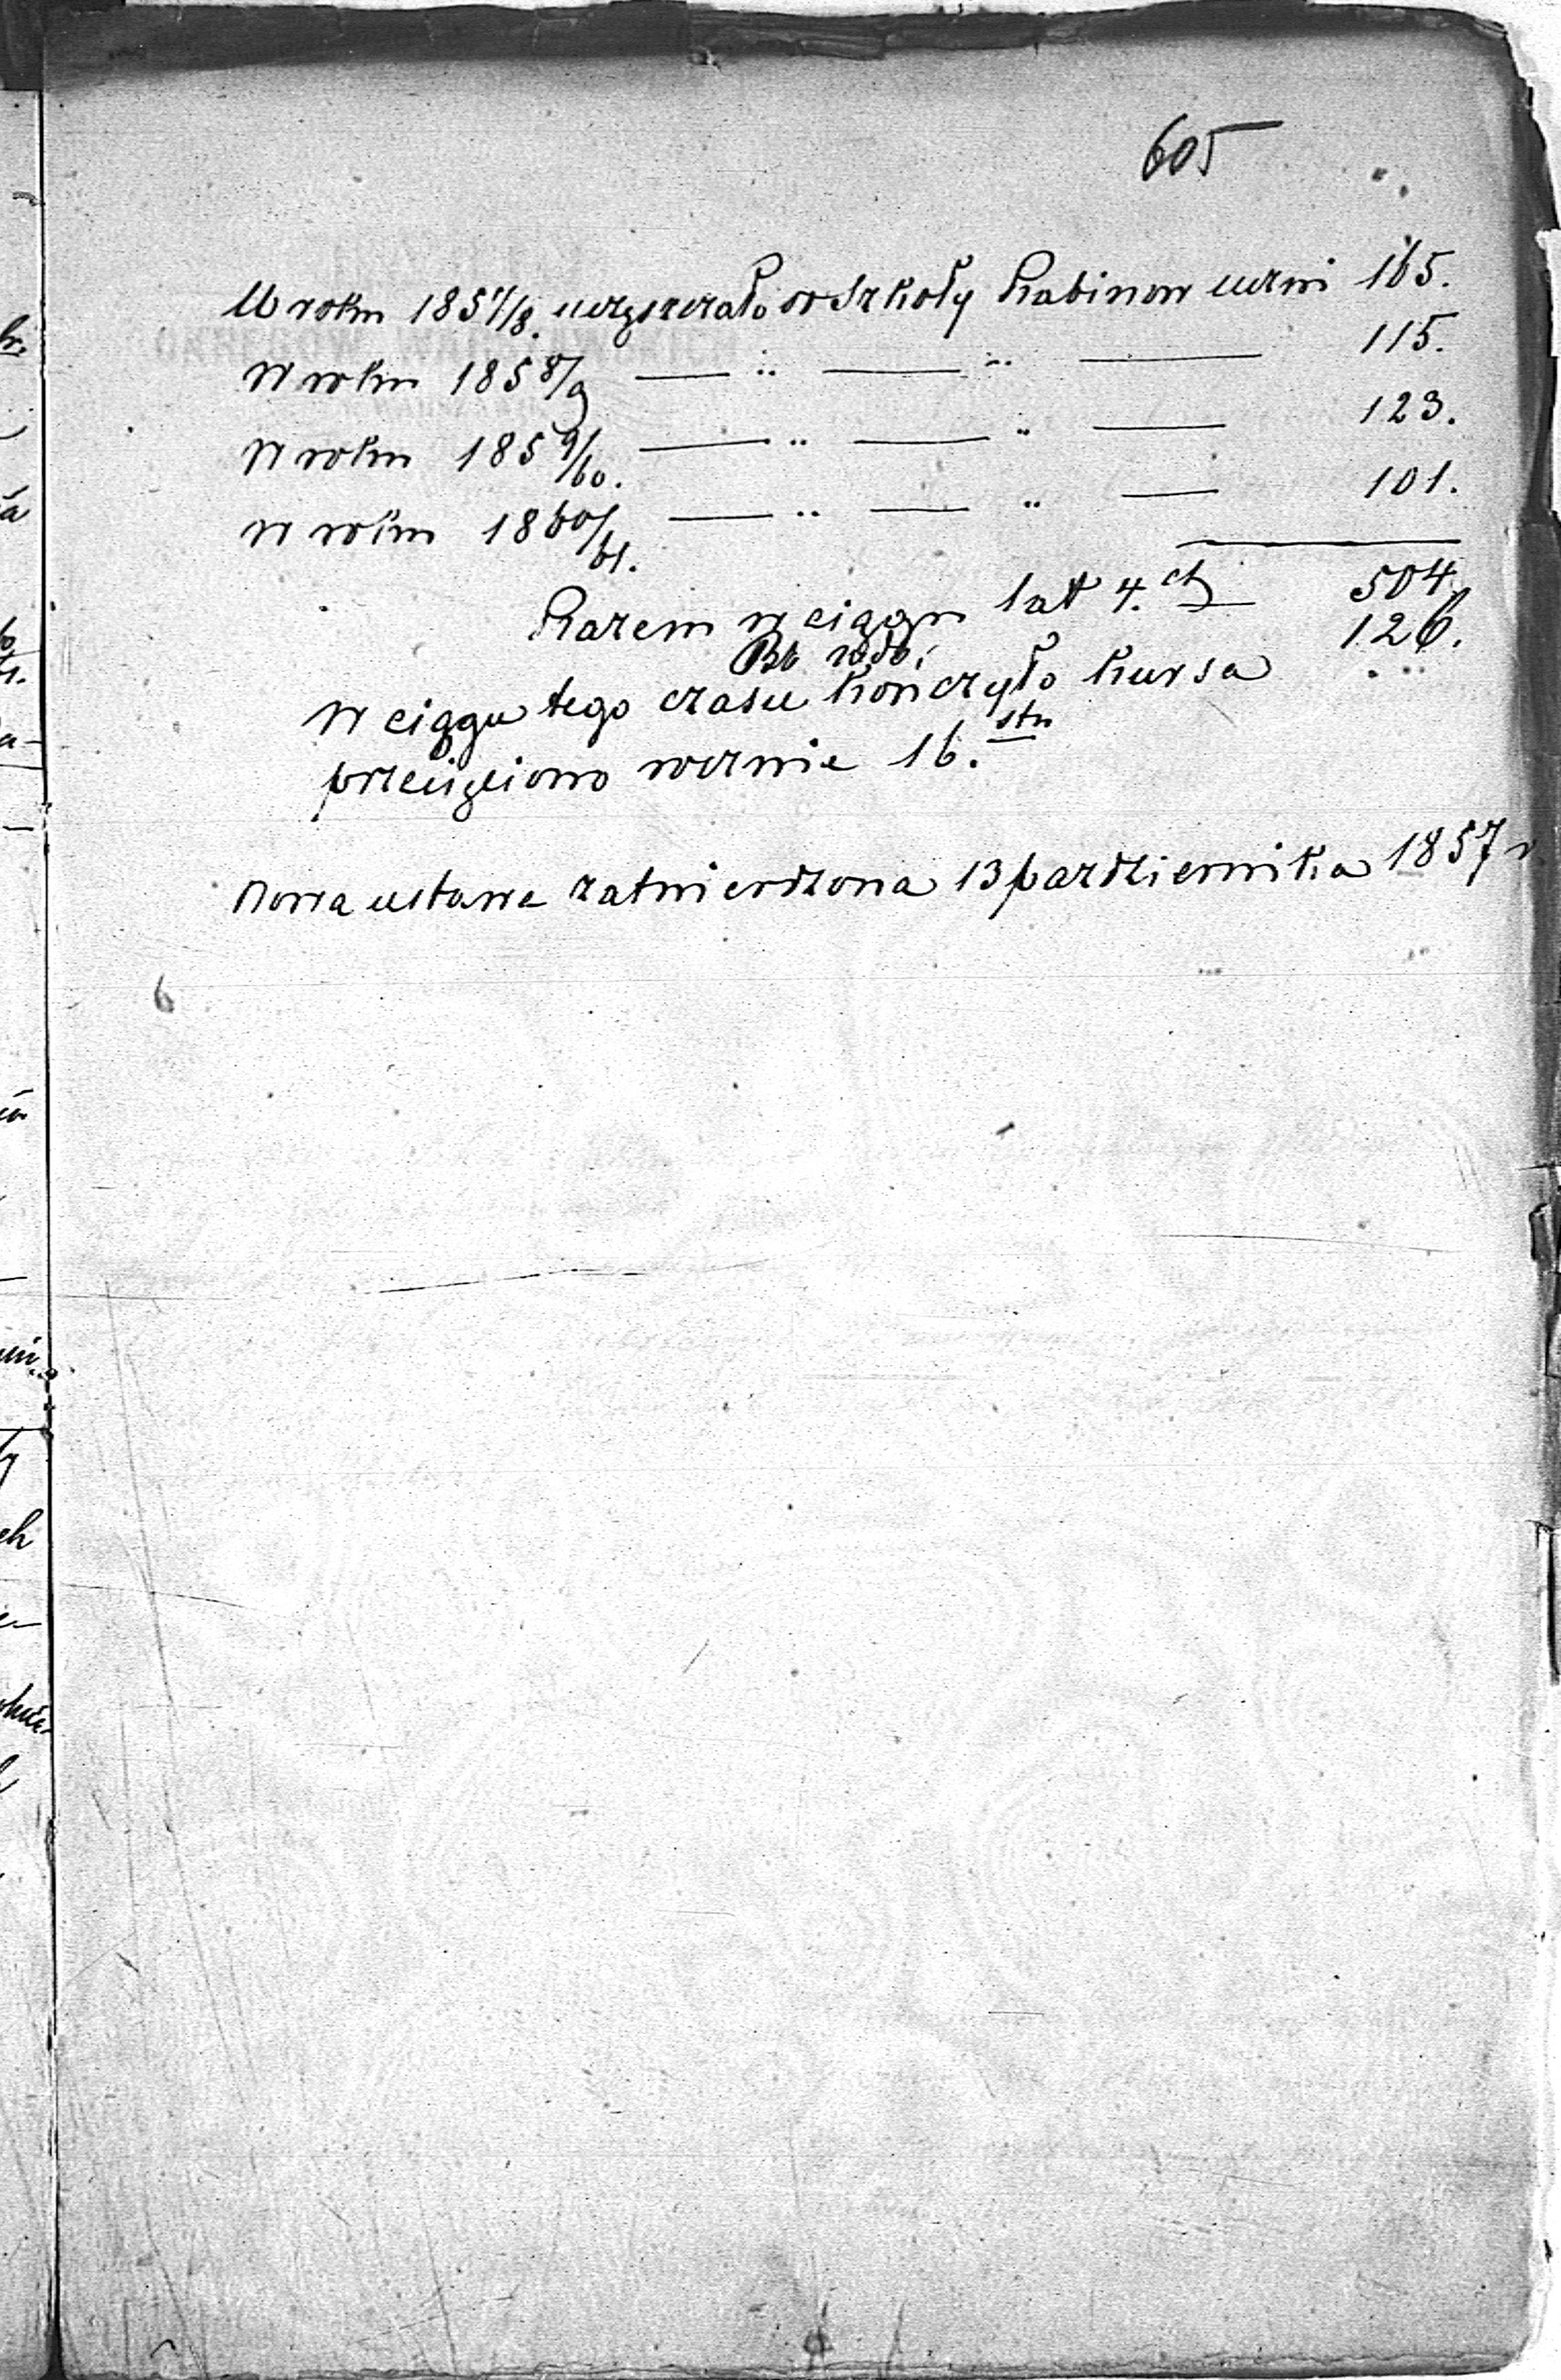 605
W roku 1857/8. uczęszczało do Szkoły Rabinow uczni 165.
W roku 1858/9 — „ — „ — 115.
W roku 1859/60. — „ — „ — 123.
W roku 1860/61. — „ — „ — 101.
Razem w ciągu lat 4.ch — 504.
126.
W ciągu tego czasu kończyło kursa
przecięciowo rocznie 16.stu
Nowa ustawa zatwierdzona 13 pazdziernika 1857 r